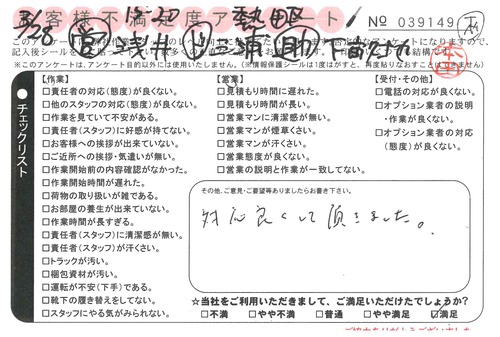 お客様不満足度アンケート
3/28
No 039149
【作業】
□責任者の対応(態度)が良くない。
□他のスタッフの対応(態度)が良くない。
□作業を見ていて不安がある。
□責任者(スタッフ)に好感が持てない。
□お客様への挨拶が出来ていない。
□ご近所への挨拶・気遣いが無い。
□作業開始前の内容確認がなかった。
□作業開始時間が遅れた。
□荷物の取り扱いが雑である。
□お部屋の養生が出来ていない。
□作業時間が長すぎる。
□責任者(スタッフ)に清潔感が無い。
□責任者(スタッフ)が汗くさい。
□トラックが汚い。
□梱包資材が汚い。
□運転が不安(下手)である。
□靴下の履き替えをしてない。
□スタッフにやる気がみられない。
【営業】
□見積もり時間に遅れた。
□見積もり時間が長い。
□営業マンに清潔感が無い。
□営業マンが煙草くさい。
□営業マンが汗くさい。
□営業態度が良くない。
□営業の説明と作業が一致してない。
【受付・その他】
□電話の対応が良くない。
□オプション業者の説明
・作業が良くない。
□オプション業者の対応
(態度)が良くない。
チェックリスト
その他、ご意見・ご要望等ありましたらお書き下さい。
対応良くして頂きました。
☆当社をご利用いただきまして、ご満足いただけたでしょうか?
□不満 □やや不満 □普通 □やや満足 ☑満足
ご協力ありがとうございました